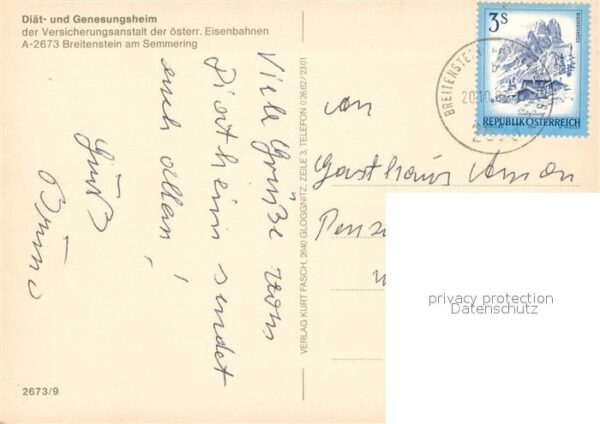 Diät- und Genesungsheim
der Versicherungsanstalt der österr. Eisenbahnen
A-2673 Breitenstein am Semmering
Viele Grüße vom
Diätheim sendet
euch allen!
Gruß
2673/9
VERLAG KURT FASCH, 2640 GLOGGNITZ, ZEILE 3, TELEFON 02662/2301
An
Gasthaus
3 S
REPUBLIK ÖSTERREICH
BREITENSTEIN
privacy protection
Datenschutz